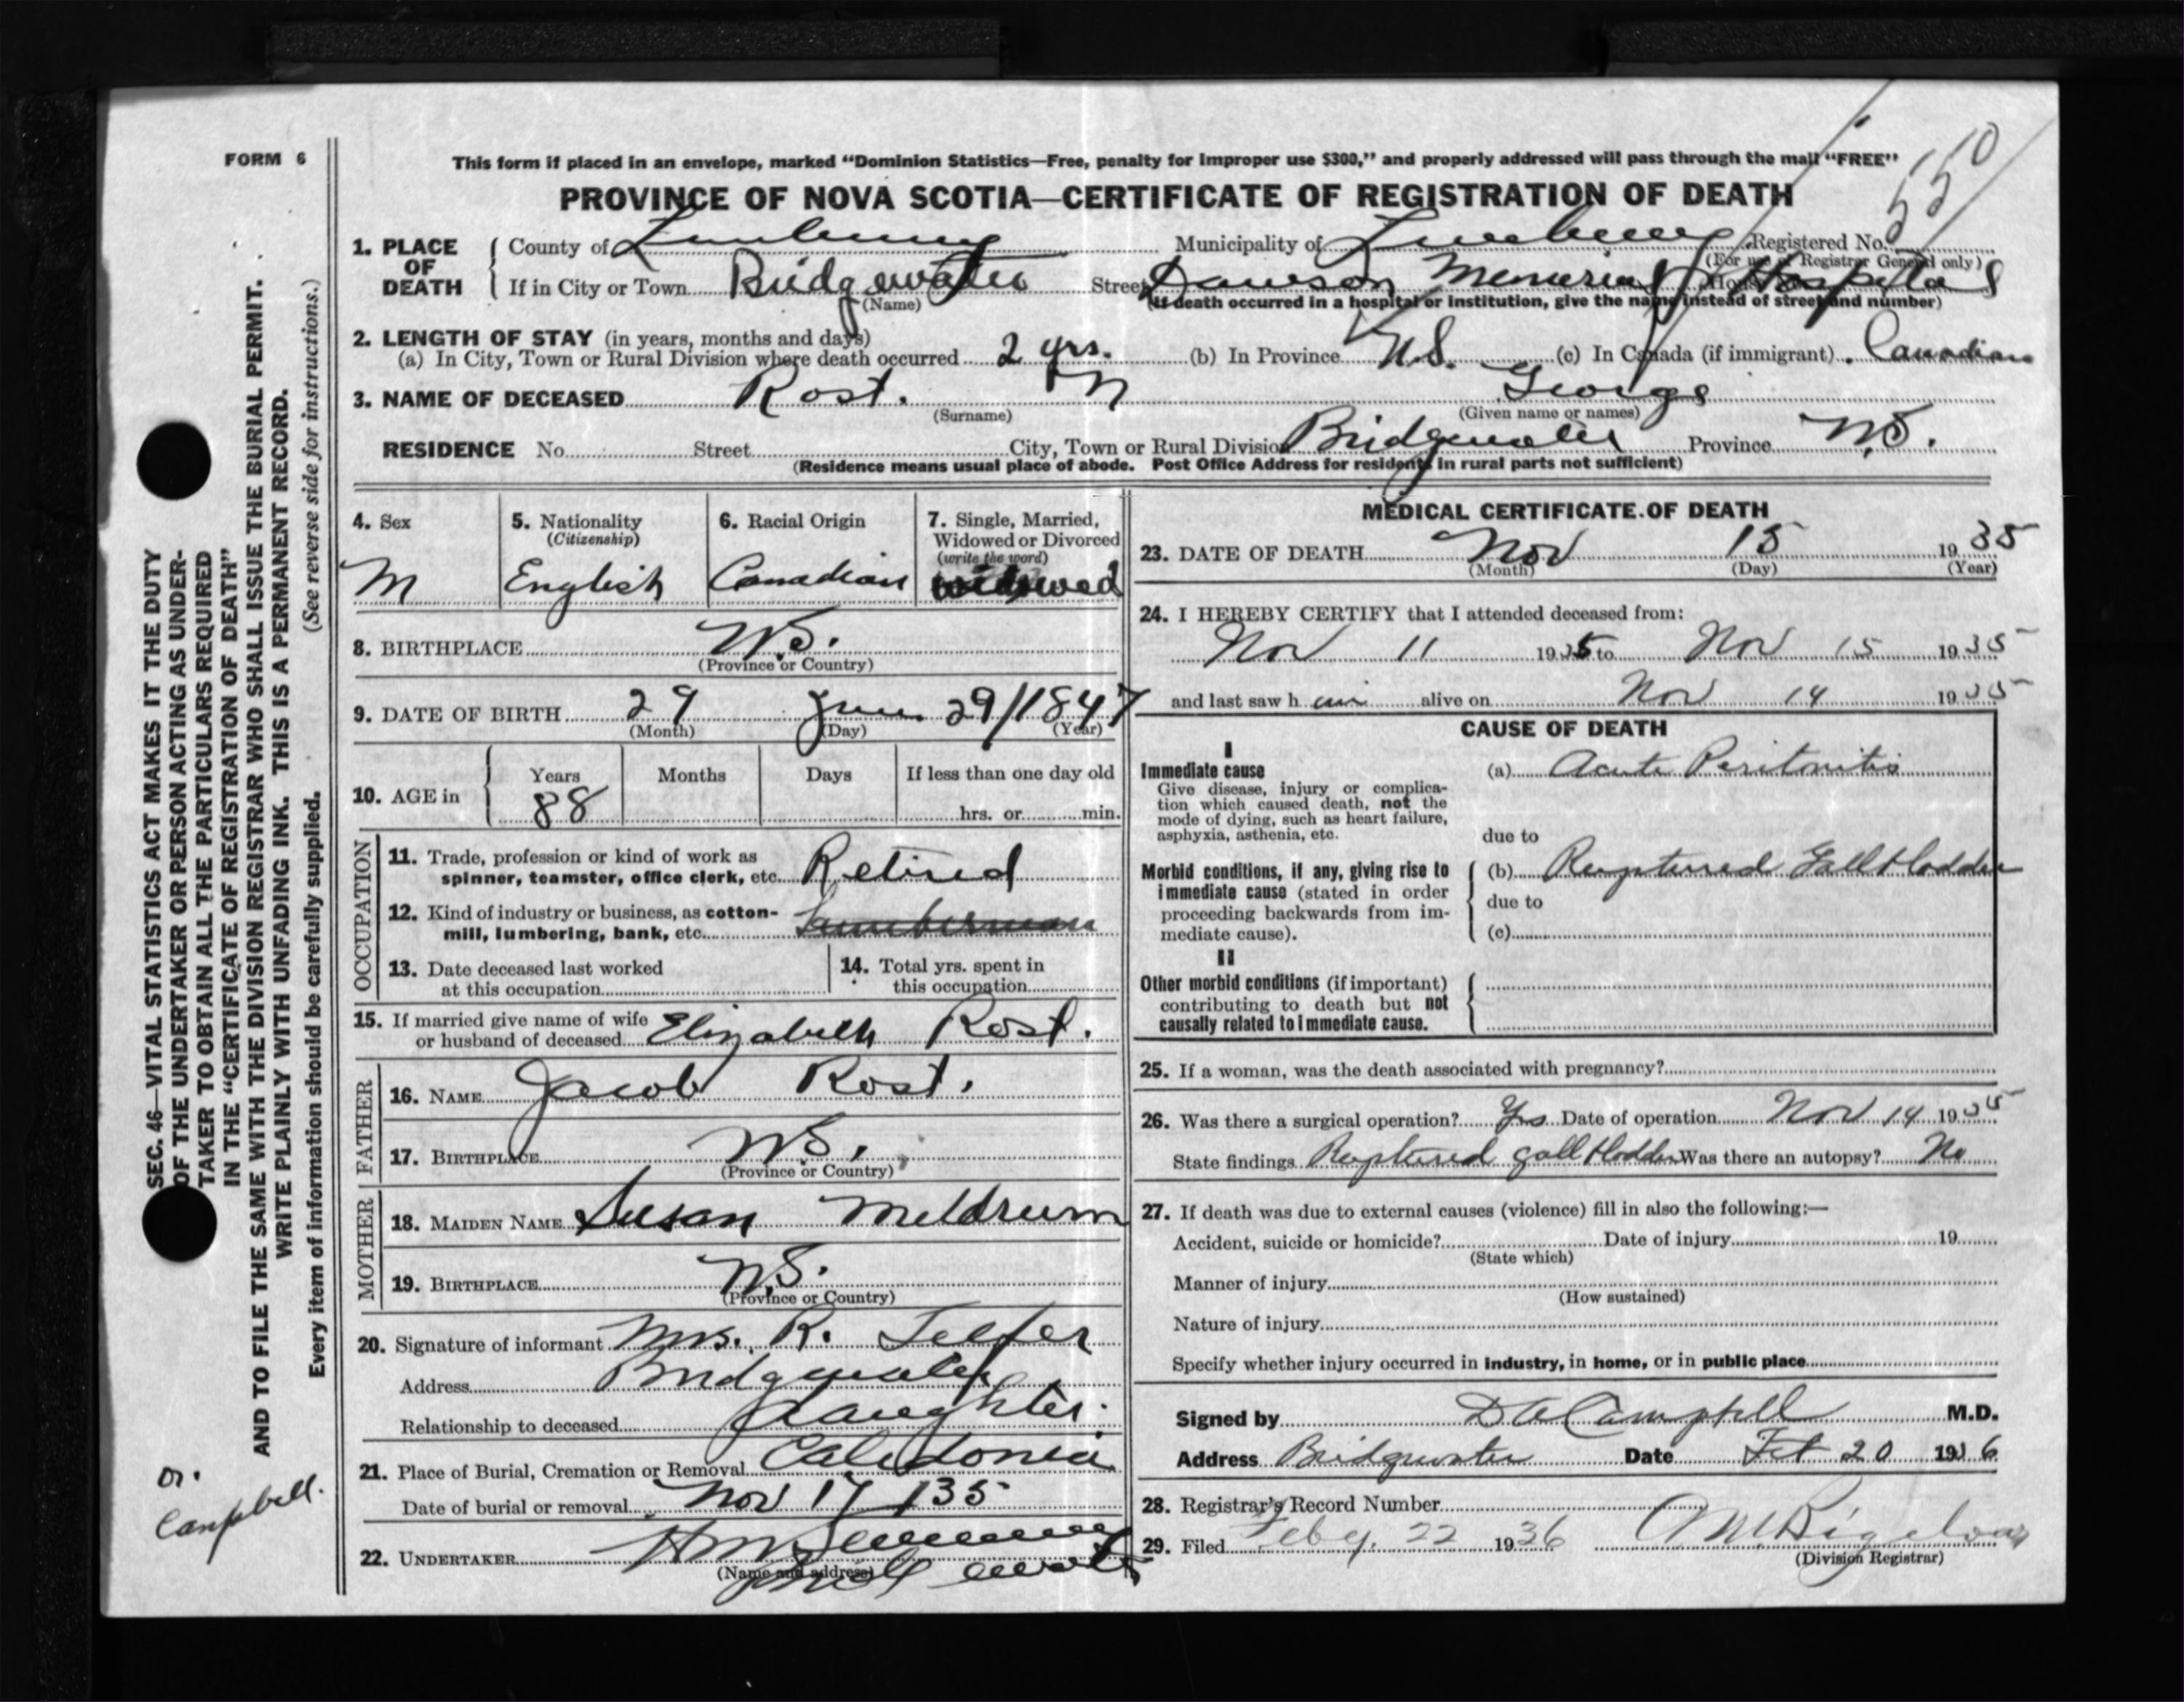 FORM 6
This form if placed in an envelope, marked "Dominion Statistics—Free, penalty for improper use $300," and properly addressed will pass through the mail "FREE"
PROVINCE OF NOVA SCOTIA—CERTIFICATE OF REGISTRATION OF DEATH
550
1. PLACE OF DEATH County of Lunenburg Municipality of Lunenburg Registered No.
(For use of Registrar General only)
If in City or Town Bridgewater Street Dawson Memorial Hospital
(Name) (If death occurred in a hospital or institution, give the name instead of street and number)
2. LENGTH OF STAY (in years, months and days)
(a) In City, Town or Rural Division where death occurred 2 yrs. (b) In Province N.S. (c) In Canada (if immigrant) Canadian
3. NAME OF DECEASED Rost. N George
(Surname) (Given name or names)
RESIDENCE No. Street City, Town or Rural Division Bridgewater Province N.S.
(Residence means usual place of abode. Post Office Address for residents in rural parts not sufficient)
4. Sex 5. Nationality (Citizenship) 6. Racial Origin 7. Single, Married, Widowed or Divorced (write the word)
M English Canadian widowed
8. BIRTHPLACE N.S.
(Province or Country)
9. DATE OF BIRTH 29 June 29/1847
(Month) (Day) (Year)
10. AGE in Years Months Days If less than one day old
88 hrs. or min.
OCCUPATION
11. Trade, profession or kind of work as
spinner, teamster, office clerk, etc. Retired
12. Kind of industry or business, as cotton-
mill, lumbering, bank, etc. Lumberman
13. Date deceased last worked at this occupation
14. Total yrs. spent in this occupation
15. If married give name of wife
or husband of deceased Elizabeth Rost.
FATHER
16. NAME Jacob Rost.
17. BIRTHPLACE N.S.
(Province or Country)
MOTHER
18. MAIDEN NAME Susan Meldrum
19. BIRTHPLACE N.S.
(Province or Country)
20. Signature of informant Mrs. R. Telfer
Address Bridgewater
Relationship to deceased daughter.
21. Place of Burial, Cremation or Removal Caledonia
Date of burial or removal Nov 17 /35
22. UNDERTAKER
(Name and address)
MEDICAL CERTIFICATE OF DEATH
23. DATE OF DEATH Nov 15 1935
(Month) (Day) (Year)
24. I HEREBY CERTIFY that I attended deceased from:
Nov 11 1935 to Nov 15 1935
and last saw him alive on Nov 14 1935
CAUSE OF DEATH
I
Immediate cause (a) Acute Peritonitis
Give disease, injury or complica-
tion which caused death, not the
mode of dying, such as heart failure,
asphyxia, asthenia, etc. due to
Morbid conditions, if any, giving rise to (b) Ruptured Gall bladder
immediate cause (stated in order due to
proceeding backwards from im-
mediate cause). (c)
II
Other morbid conditions (if important)
contributing to death but not
causally related to immediate cause.
25. If a woman, was the death associated with pregnancy?
26. Was there a surgical operation? Yes Date of operation Nov 14 1935
State findings Ruptured gall bladder Was there an autopsy? No
27. If death was due to external causes (violence) fill in also the following:—
Accident, suicide or homicide? Date of injury 19
(State which)
Manner of injury
(How sustained)
Nature of injury
Specify whether injury occurred in industry, in home, or in public place
Signed by D A Campbell M.D.
Address Bridgewater Date Feb 20 1936
28. Registrar's Record Number
29. Filed Feby. 22 1936
(Division Registrar)
SEC. 46—VITAL STATISTICS ACT MAKES IT THE DUTY
OF THE UNDERTAKER OR PERSON ACTING AS UNDER-
TAKER TO OBTAIN ALL THE PARTICULARS REQUIRED
IN THE "CERTIFICATE OF REGISTRATION OF DEATH"
AND TO FILE THE SAME WITH THE DIVISION REGISTRAR WHO SHALL ISSUE THE BURIAL PERMIT.
WRITE PLAINLY WITH UNFADING INK. THIS IS A PERMANENT RECORD.
Every item of information should be carefully supplied. (See reverse side for instructions.)
Dr.
Campbell.